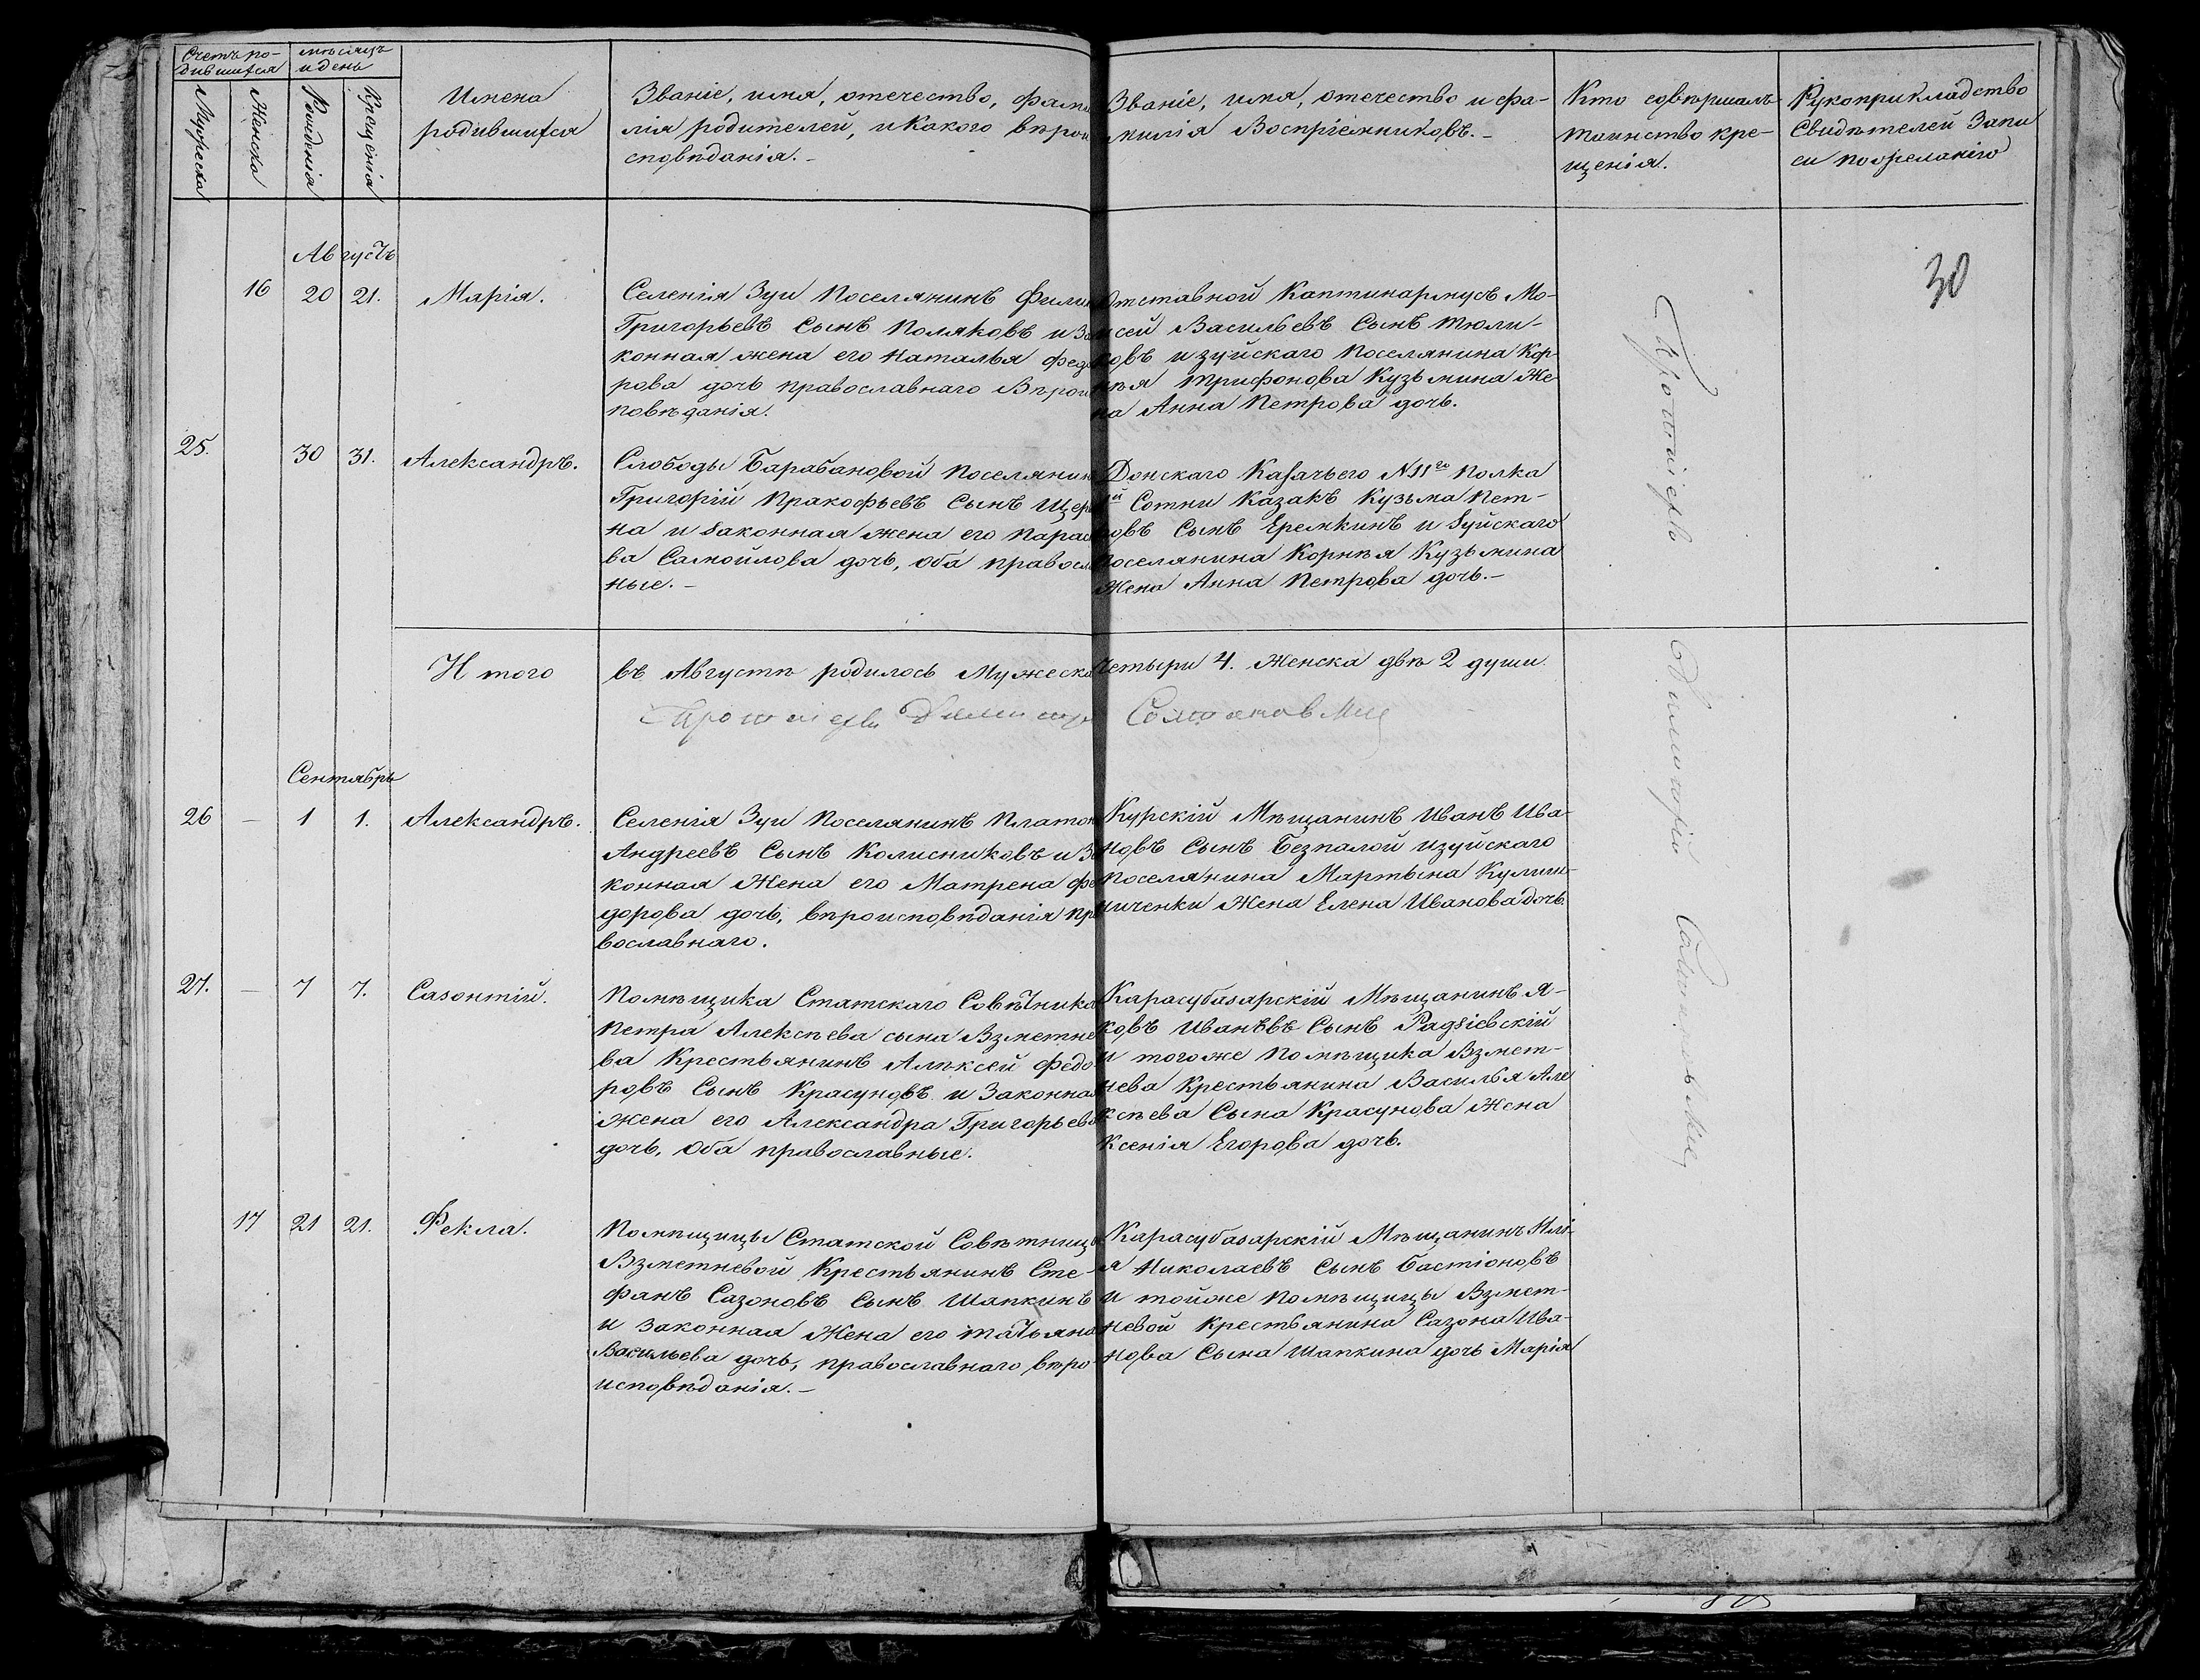 Счетъ ро-
дившихся
мѣсяцъ
и день
Мужеска
Женска
Рожденія
Крещенія
Имена
родившихся
Званіе, имя, отечество, фами
лія родителей, и какого вѣрои
сповѣданія.-
Званіе, имя, отечество и фа-
милія Воспріемниковъ.-
Кто совершалъ
таинство кре-
щенія.
Рукоприкладство
Свидѣтелей Запи
си по желанію
30
Августъ
16 20 21. Марія.
Селенія Зуи поселянинъ Филип
Григорьевъ Сынъ Поляковъ и За
конная жена его Наталья Федо
рова дочь православнаго Вѣроис
повѣданія.
Отставной Каптинармусъ Мо-
исей Васильевъ Сынъ Тюли-
ковъ и зуйскаго поселянина Кор-
нѣя Трифонова Кузьмина Же
на Анна Петрова дочь.
25. 30 31. Александръ.
Слободы Барабановой поселянин
Григорій Пракофьевъ Сынъ Щер
на и законная жена его Параск
ва Самойлова дочь, оба правосл
ные.-
Донскаго Казачьего N 11го полка
й Сотни Казакъ Кузьма Пет-
ровъ Сынъ Еремкинъ и Зуйскаго
поселянина Корнѣя Кузьмина
Жена Анна Петрова дочь.-
Итого
въ Августѣ родилось Мужеска
четыри 4. Женска двѣ 2 души.
Протоіерей Димитрі
Сентябрь
26 - 1 1. Александръ.
Селенія Зуи поселянинъ Платон
Андреевъ Сынъ Колисниковъ и За
конная Жена его Матрена Фе
дорова дочь, вѣроисповѣданія пра
вославнаго.
Курскій Мѣщанинъ Иванъ Ива-
новъ Сынъ Безпалой и зуйскаго
поселянина Мартына Кулиш-
ниченки Жена Елена Иванова дочь
27. - 7 7. Сазонтій.
Помѣщика Статскаго Совѣтника
Петра Алексѣева сына Взметне
ва Крестьянинъ Алѣксей Федо
ровъ Сынъ Красуновъ и Законная
жена его Александра Григорьева
дочь, Оба православные.
Карасубазарскій Мѣщанинъ Я-
ковъ Иванѣвъ Сынъ Радзіевскій
и тогоже помѣщика Взмет-
нева Крестьянина Василья Але
ксѣева Сына Красунова Жена
Ксенія Егорова дочь.
17 21 21. Фекла.
Помѣщицы Статской Совѣтницы
Взметневой Крестьянинъ Сте-
фанъ Сазоновъ Сынъ Шапкинъ
и законная Жена его татьяна
Васильева дочь, православнаго вѣро
исповѣданія.-
Карасубазарскій Мѣщанинъ Илі-
я Николаевъ Сынъ Бастіоновъ
и тойже помѣщицы Взмет-
невой Крестьянина Сазона Ива-
нова Сына Шапкина дочь Марія
Протоіерей Димитрій